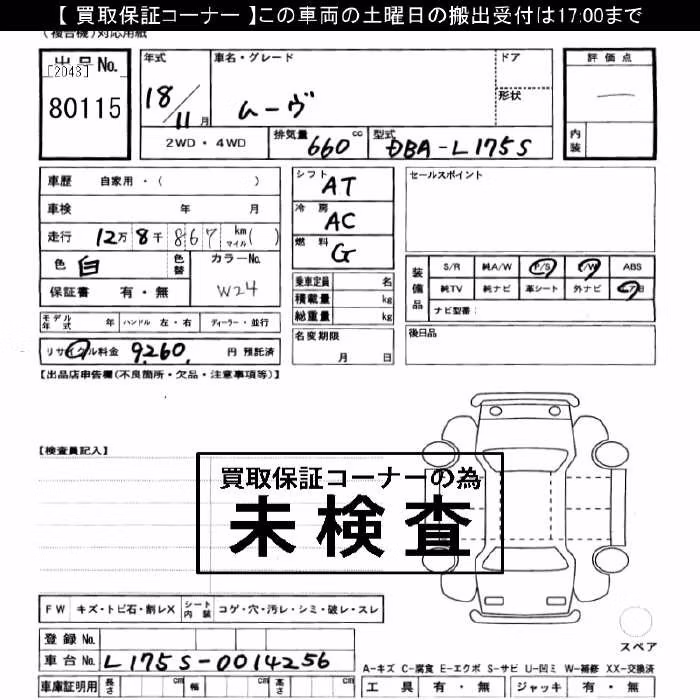 【 買取保証コーナー 】この車両の土曜日の搬出受付は17:00まで
(複合機)対応用紙
出品No.
[2043]
80115
年式
18/11月
車名・グレード
ムーヴ
ドア
形状
評価点
―
内装
2WD・4WD
排気量
660 cc
型式
DBA-L175S
車歴 自家用・( )
車検 年 月
走行 12万8千867 km マイル( )
色 白
色替
カラーNo.
W24
保証書 有・無
モデル年式 年 ハンドル 左・右 ディーラー・並行
リサイクル料金 9,260. 円 預託済
シフト
AT
冷房
AC
燃料
G
乗車定員 名
積載量 kg
総重量 kg
名変期限
月 日
セールスポイント
装備品
S/R 純A/W P/S P/W ABS
純TV 純ナビ 革シート 外ナビ
ナビ型番:
後日品
【出品店申告欄(不良箇所・欠品・注意事項等)】
【検査員記入】
買取保証コーナーの為
未検査
FW キズ・トビ石・割レX シート内装 コゲ・穴・汚レ・シミ・破レ・スレ
登録No.
車台No. L175S-0014256
車庫証明用 長さ cm 幅 cm 高さ cm
スペア
A-キズ C-腐食 E-エクボ S-サビ U-凹ミ W-補修 XX-交換済
工具 有・無 ジャッキ 有・無